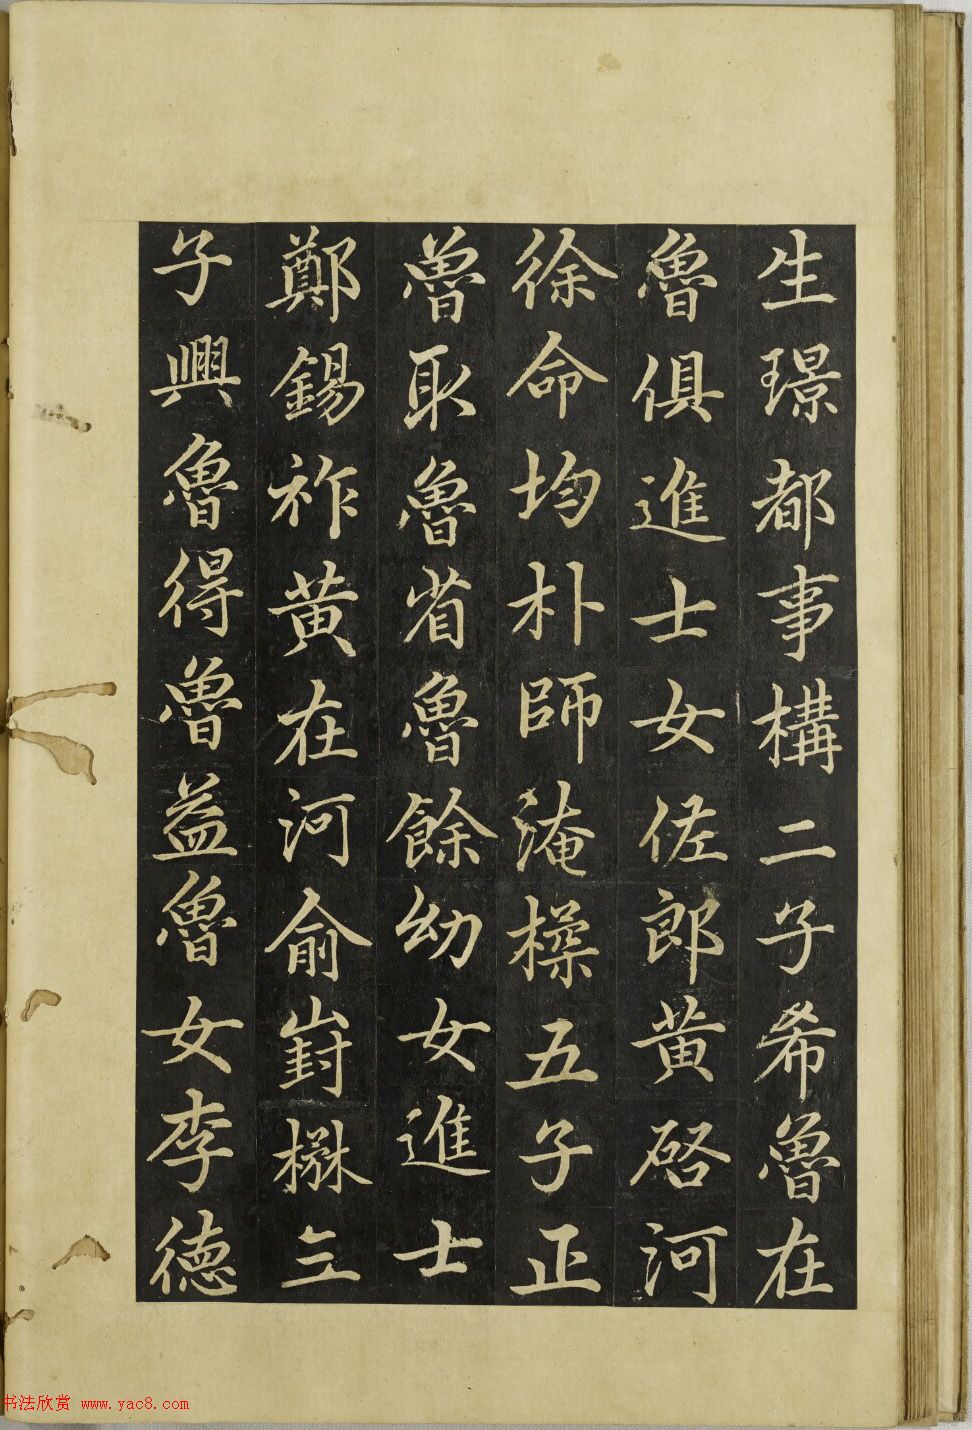 生璟都事構二子希魯在
魯俱進士女佐郎黄啓河
徐命均朴師淹橾五子正
魯取魯省魯餘幼女進士
鄭錫祚黄在河俞崶楙三
子興魯得魯益魯女李德
书法欣赏 www.yac8.com